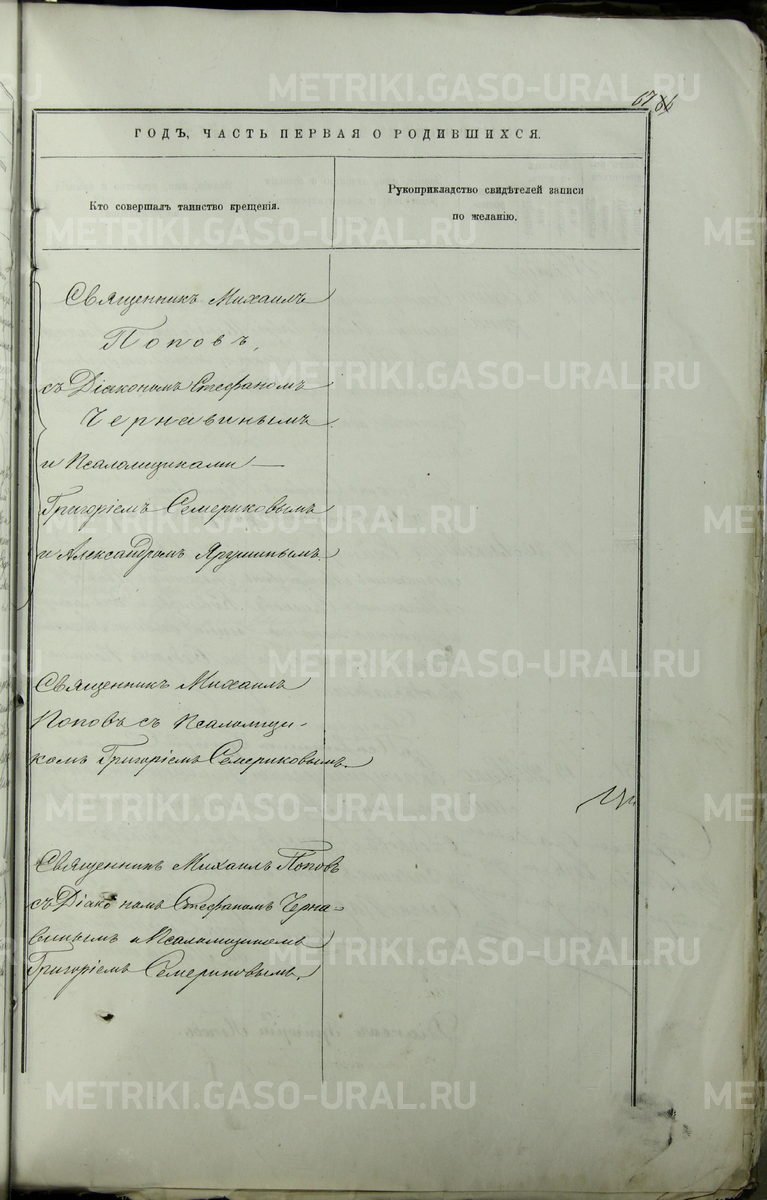 67 66
ГОДЪ, ЧАСТЬ ПЕРВАЯ О РОДИВШИХСЯ.
Кто совершалъ таинство крещенія.
Рукоприкладство свидѣтелей записи
по желанію.
Священникъ Михаилъ
Поповъ,
съ Діакономъ Стефаномъ
Чернавинымъ
и Псаломщиками —
Григоріемъ Семериковымъ
и Александромъ
Священникъ Михаилъ
Поповъ съ Псаломщи-
комъ Григоріемъ Семериковымъ.
Священникъ Михаилъ Поповъ
съ Діакономъ Стефаномъ Черна-
винымъ и Псаломщикомъ
Григоріемъ Семериковымъ.
METRIKI.GASO-URAL.RU